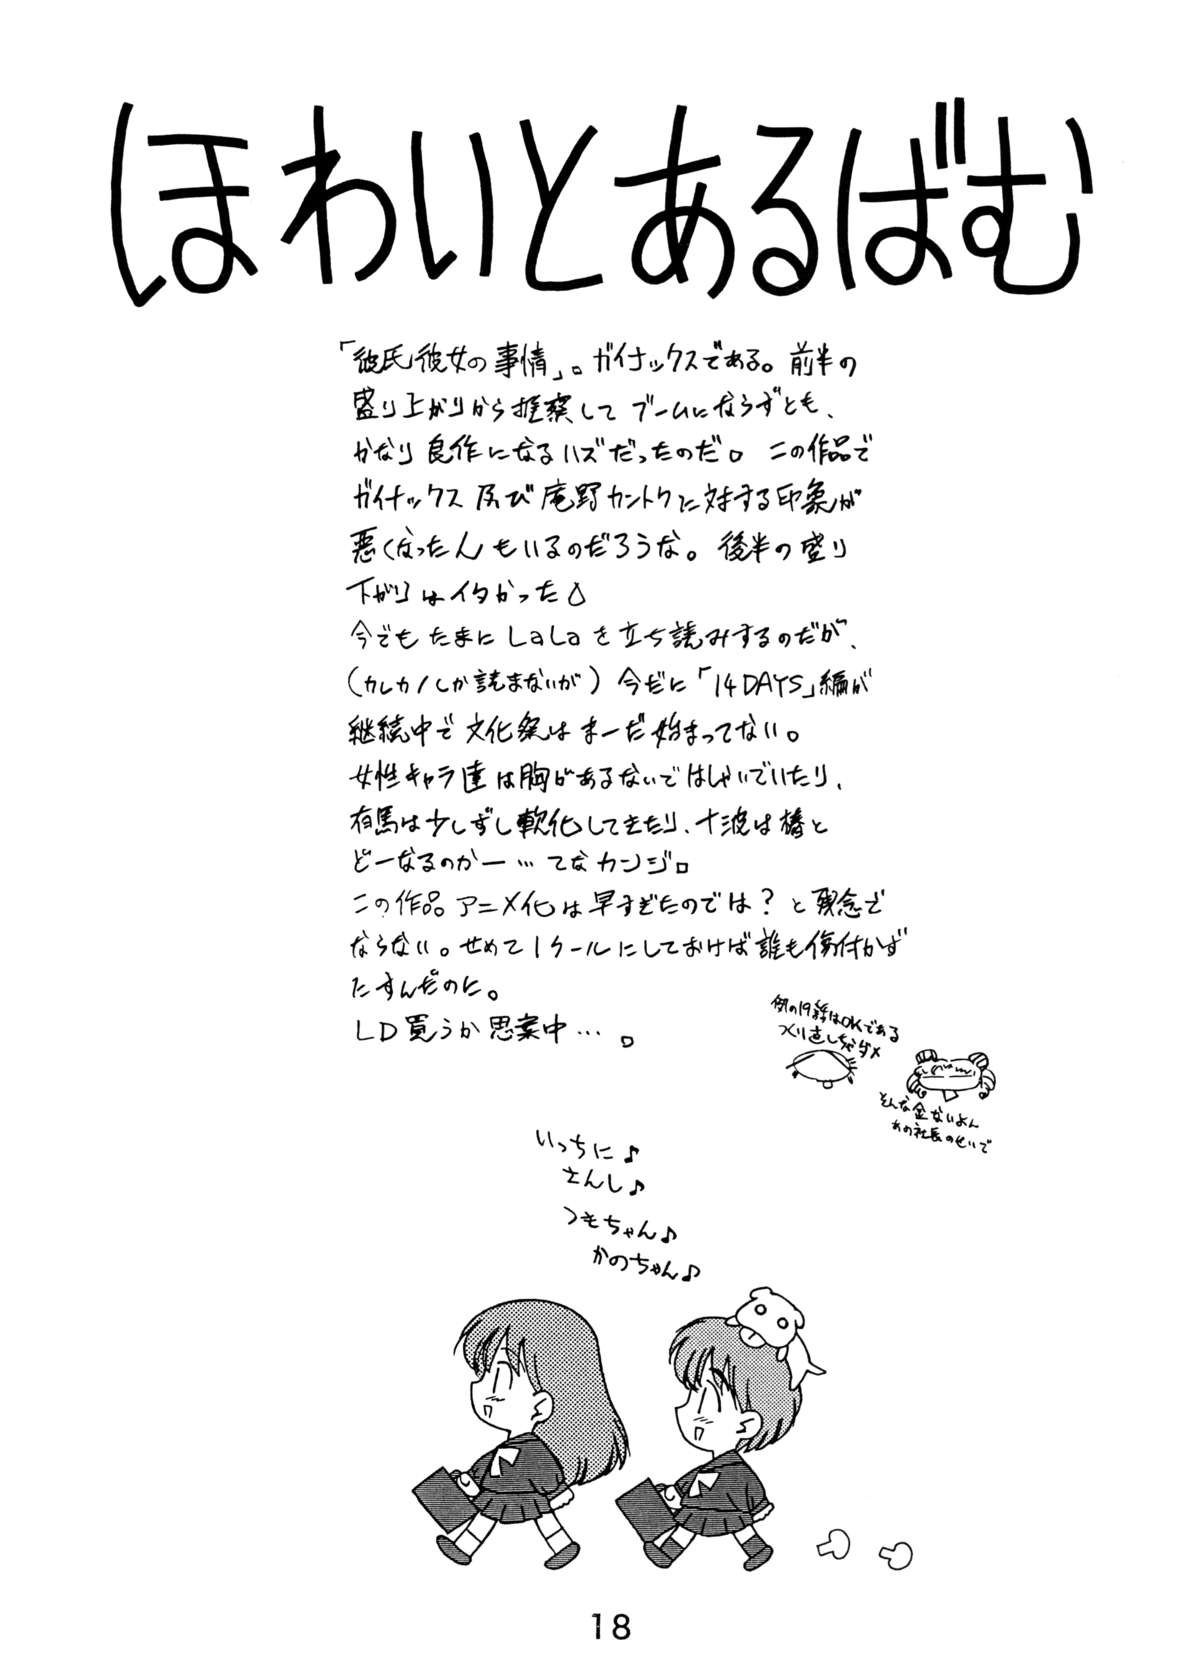 ほわいとあるばむ
「彼氏彼女の事情」。ガイナックスである。前半の
盛り上がりから推察してブームにならずとも、
かなり良作になるハズだったのだ。この作品で
ガイナックス及び庵野カントクに対する印象が
悪くなったんもいるのだろうな。後半の盛り
下がりはイタかった
今でもたまにLaLaを立ち読みするのだが、
(カレカノしか読まないが)今だに「14DAYS」編が
継続中で文化祭はまーだ始まってない。
女性キャラ達は胸があるないではしゃいでいたり、
有馬は少しずつ軟化してきたり、十波は椿と
どーなるのかー…てなカンジ。
この作品アニメ化は早すぎたのでは?と残念で
ならない。せめて1クールにしておけば誰も傷付かず
たすんだのに。
LD買うか思案中…。
例の19話はOKである
つくり直しちゃダメ
そんな金ないよん
あの社長のせいで
いっちに♪
さんし♪
つもちゃん♪
かのちゃん♪
18